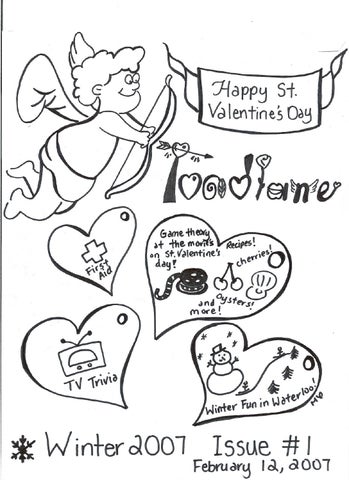 Happy St.
Valentine's Day
Toadlane
First
Aid
Game theory
at the movies
on St. Valentine's
day?
Recipes!
cherries!
Oysters!
and
more!
TV Trivia
Winter Fun in Waterloo!
Winter 2007 Issue #1
February 12, 2007